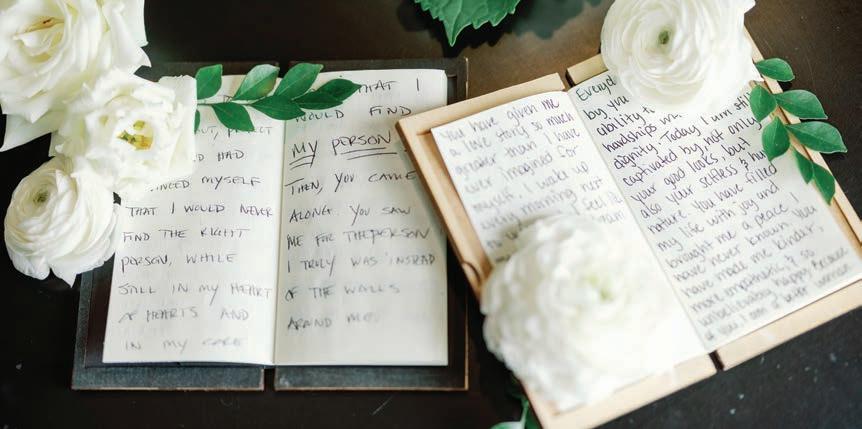 OUT,
D HAD
MYSELF
THAT I WOULD NEVER
FIND THE RIGHT
PERSON, WHILE
STILL IN MY HEART
OF HEARTS AND
IN MY CORE
THAT I
WOULD FIND
MY PERSON
THEN, YOU CAME
ALONG. YOU SAW
ME FOR THE PERSON
I TRULY WAS INSTEAD
OF THE WALLS
AROUND ME.
You have given me
a love story so much
greater than I have
ever imagined for
myself. I wake up
every morning next
by you
ability to
hardships
dignity. Today I am still
captivated by not only
your good looks, but
also your selfless &
nature. You have filled
my life with joy and
brought me a peace I
have never known. You
have made me kinder,
more empathetic & so
unbelievably happy. Because
of you I am a better woman